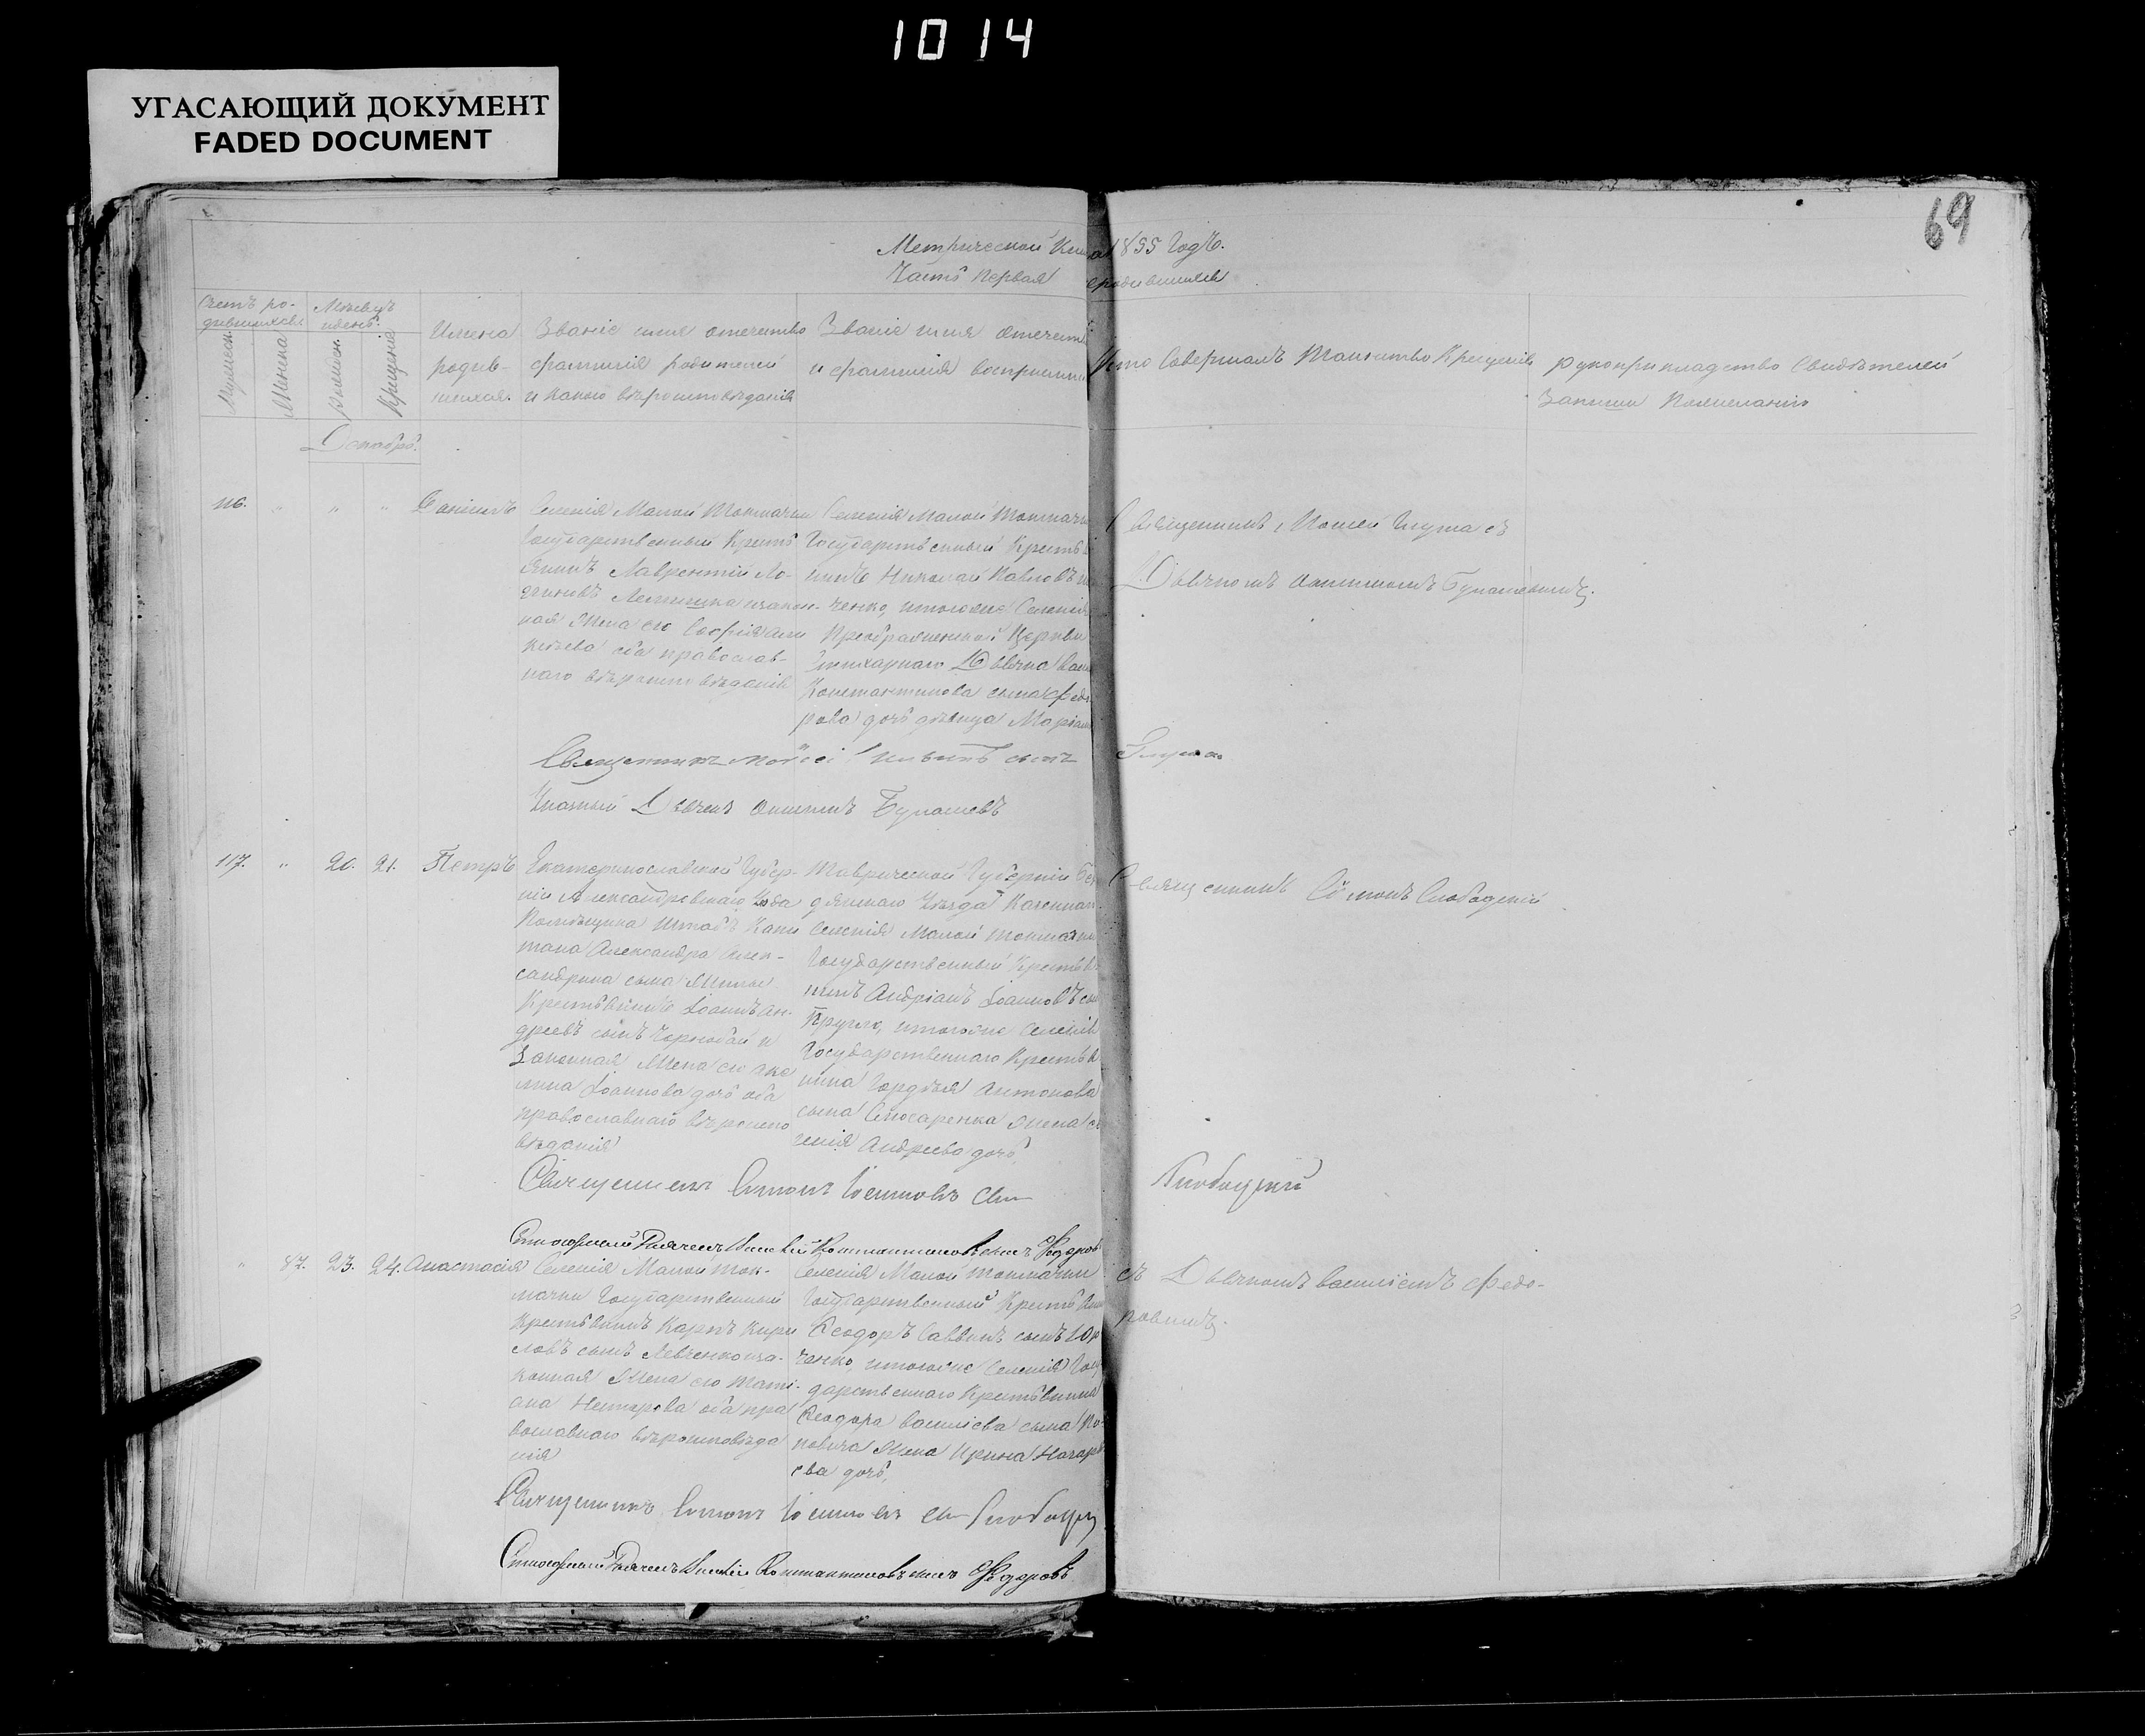 1014
УГАСАЮЩИЙ ДОКУМЕНТ
FADED DOCUMENT
69
Метрической 1855 Годъ.
Часть первая родившихся
Счетъ ро-
дившихся
Мѣсяцъ
и день.
Мужеск.
Женска
Рожден.
Крещенія
Имена
родив-
шихся.
Званіе имя отечество
фамилія родителей
и какого вѣроисповѣданія
Званіе имя отечеств
и фамилія воспріемни
Кто Совершалъ Таинство Крещенія
Рукоприкладство Свидѣтелей
Записи По желанію
Декабрь.
116. " " " Даніилъ
Селенія Малой Токмачки
Государственный Кресть
янинъ Лаврентій Ло-
гиновъ законн-
ная жена его Софія
оба православ-
наго вѣроисповѣданія
Селенія Малой Токмачк
Государственный Кресть
нинъ Николай Павловъ
ченко, и тогоже Селенія
Преображенской Церкви
Стихарнаго Дьячка
Константинова сына Федо
рова дочь дѣвица Маріам
Священникъ Моисей Глушко съ
Дьячкомъ Булашевымъ.
Священникъ Моисей сынъ Глушко
Указный Дьячекъ Булашевъ
117. " 20. 21. Петръ
Екатеринославской Губер-
ніи Александровскаго Уѣзда
Помѣщика Штабъ Капи
тана Александра Алек-
сандрина сына
Крестьянинъ Іоаннъ Ан-
дреевъ сынъ Чорнобай и
Законная Жена его Аки
лина Іоаннова дочь оба
православнаго вѣроиспо
вѣданія
Таврической Губерніи Бер
дянскаго Уѣзда Казеннаго
Селенія Малой Токмачки
Государственный Крестья
нинъ Андріанъ Іоанновъ сы
и тогоже Селенія
Государственнаго Крестья
нина Гордѣя Антонова
сына Слюсаренка жена
Андреева дочь.
Священникъ Симонъ Слободскій
Священникъ Симонъ сынъ Слободскій
Стихарный Дьячекъ Василій Константиновъ сынъ Федоровъ
" 87. 23. 24. Анастасія
Селенія Малой Ток-
мачки Государственный
Крестьянинъ Карпъ Кири
ловъ сынъ Левченко и за-
конная Жена его Тати-
ана Нестерова оба пра
вославнаго вѣроисповѣда
нія
Селенія Малой Токмачки
Государственный Крестьян
Ѳеодоръ Саввинъ сынъ Юр
ченко, и тогоже Селенія Госу
дарственнаго Крестьянина
Ѳеодора Василіева сына По-
повича Жена Ирина Назарь
ева дочь,
съ Дьячкомъ Василіемъ Федо-
ровымъ.
Священникъ Симонъ сынъ Слободскій
Стихарный Дьячекъ Василій Константиновъ сынъ Федоровъ